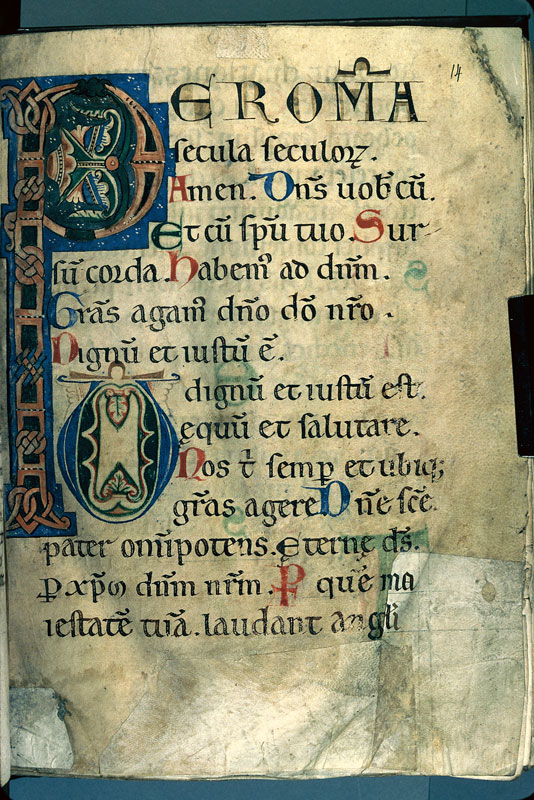 14
PER OM̅A
secula seculoꝝ.
Amen. Dn̅s uob̅cu̅.
Et cu̅ sp̅u tuo. Sur
su̅ corda. Habem᷒ ad dn̅m.
Gr̅as agam᷒ dn̅o dō nr̅o.
Dignu̅ et iustu̅ ē.
VD dignu̅ et iustu̅ est.
ęquu̅ et salutare.
Nos t̅ semꝑ et ubiqꝫ
gr̅as agere. Dn̅e sc̅e
pater om̅ipotens. ęterne d̅s.
ꝑ xp̅m dn̅m nr̅m. P̱ que̅ ma
iestate̅ tua̅. laudant angl̅i